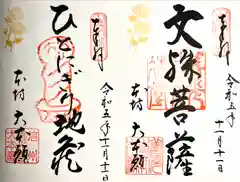 奉拝
文殊菩薩
令和五年十一月十一日
本坊 大本願
奉拝
ひとにぎり地蔵
令和五年十一月十一日
本坊 大本願